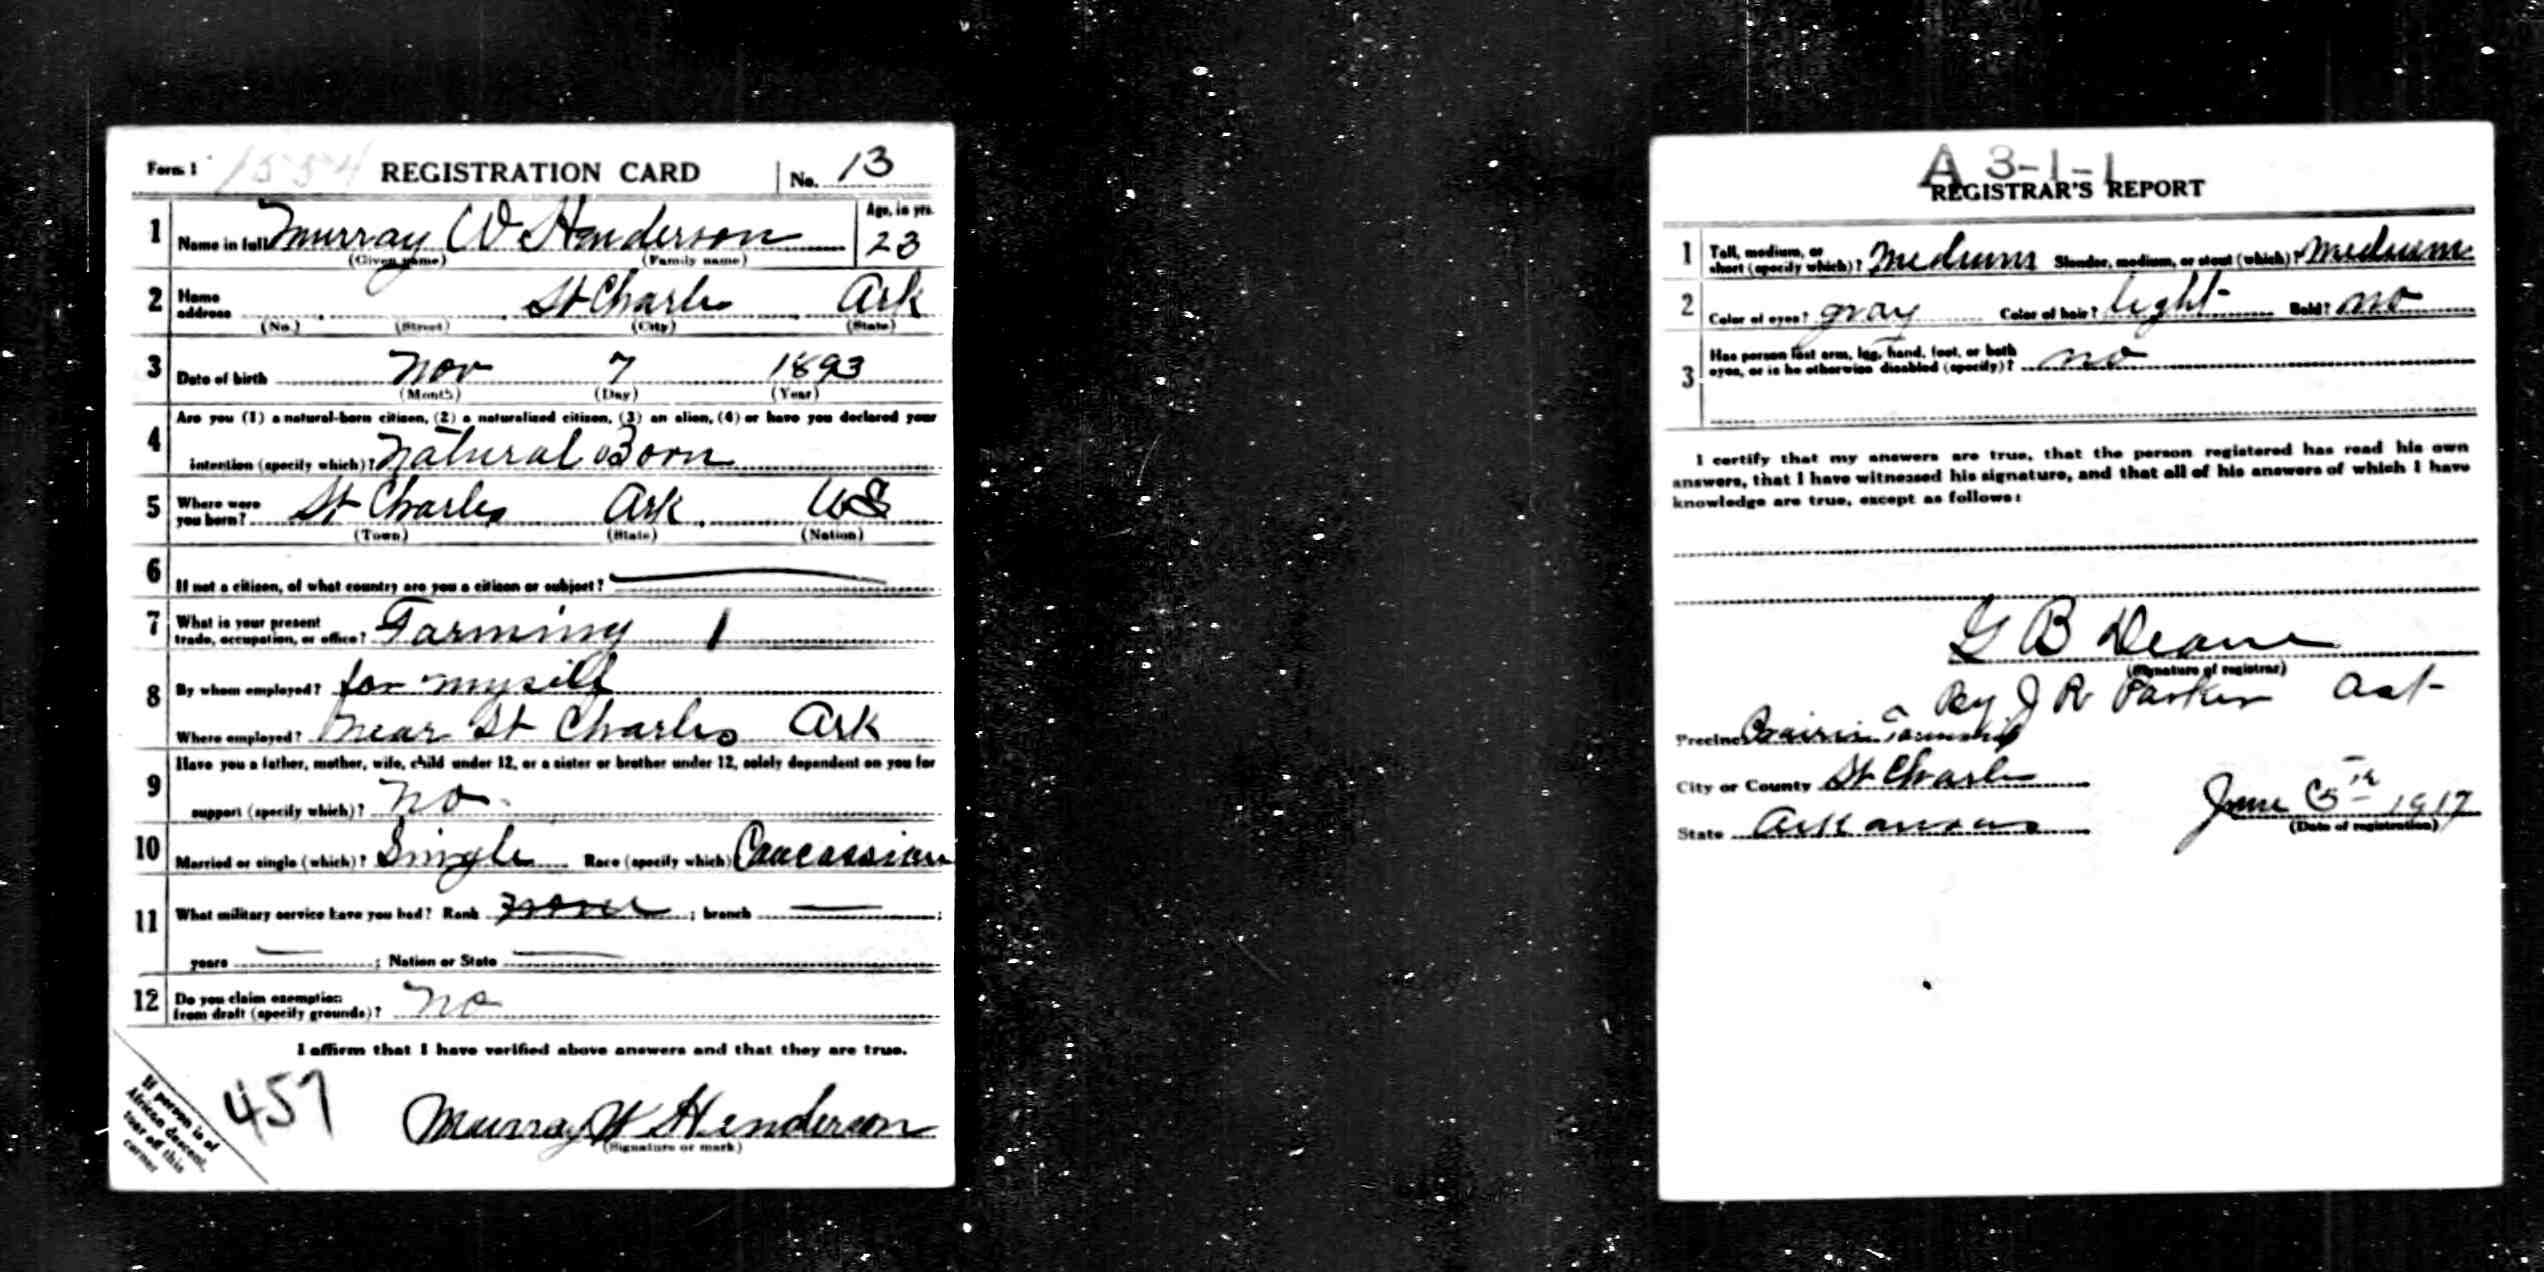 Form 1 1554 REGISTRATION CARD No. 13
1 Name in full Murray W Henderson Age, in yrs. 23
(Given name) (Family name)
2 Home address St Charles Ark
(No.) (Street) (City) (State)
3 Date of birth Nov 7 1893
(Month) (Day) (Year)
Are you (1) a natural-born citizen, (2) a naturalized citizen, (3) an alien, (4) or have you declared your
4 intention (specify which)? Natural Born
5 Where were you born? St Charles Ark. US
(Town) (State) (Nation)
6 If not a citizen, of what country are you a citizen or subject?
7 What is your present trade, occupation, or office? Farming 1
8 By whom employed? for myself
Where employed? Near St Charles Ark
Have you a father, mother, wife, child under 12, or a sister or brother under 12, solely dependent on you for
9 support (specify which)? No
10 Married or single (which)? Single Race (specify which) Caucassian
11 What military service have you had? Rank None ; branch — ;
years — ; Nation or State —
12 Do you claim exemption from draft (specify grounds)? No
I affirm that I have verified above answers and that they are true.
457
Murray W Henderson
(Signature or mark)
If person is of
African descent,
tear off this
corner
A 3-1-1
REGISTRAR'S REPORT
1 Tall, medium, or short (specify which)? Medium Slender, medium, or stout (which)? Medium
2 Color of eyes? gray Color of hair? light Bald? No
3 Has person lost arm, leg, hand, foot, or both eyes, or is he otherwise disabled (specify)? No
I certify that my answers are true, that the person registered has read his own
answers, that I have witnessed his signature, and that all of his answers of which I have
knowledge are true, except as follows:
G B Deane
(Signature of registrar)
By J R Parker Ast
Precinct Prairie Township
City or County St Charles
State Arkansas
June 5th 1917
(Date of registration)